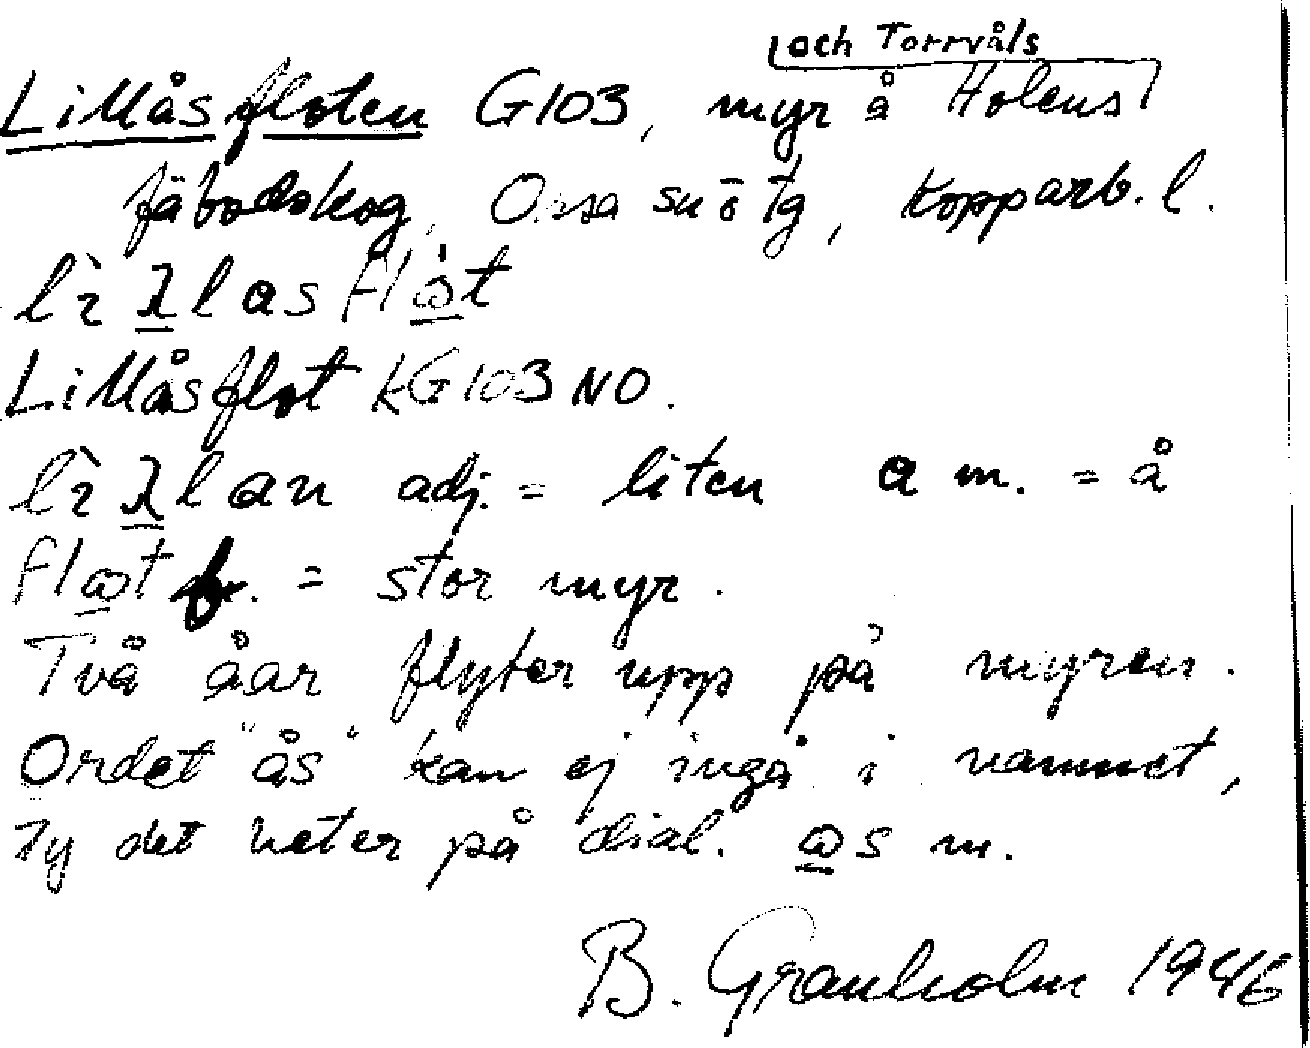 och Torrvåls
Lillåsfloten G103, myr å Holens
fäbodskog, Orsa sn ö tg, Kopparb. l.
lì λ̲lasflὼ̲t
Lillåsflot kG103NO.
lì λ̲lan adj. = liten a m. = å
flω̲t f. = stor myr.
Två åar flyter upp på myren.
Ordet "ås" kan ej ingå i namnet,
ty det heter på dial. ω̲s m.
B. Granholm 1946